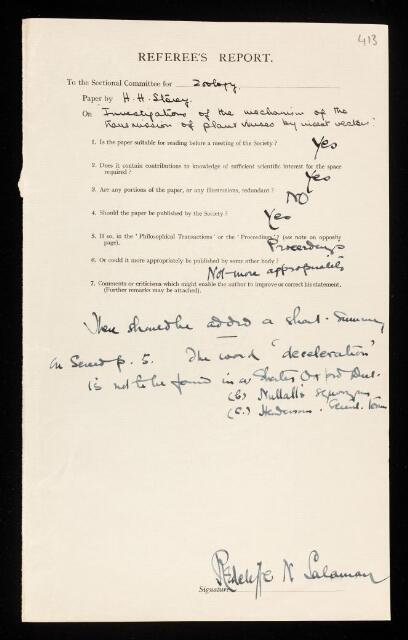 413
REFEREE'S REPORT.
To the Sectional Committee for Zoology.
Paper by H. H. Storey.
On "Investigations of the mechanism of the
transmission of plant viruses by insect vectors."
1. Is the paper suitable for reading before a meeting of the Society? Yes
2. Does it contain contributions to knowledge of sufficient scientific interest for the space
required? Yes
3. Are any portions of the paper, or any illustrations, redundant? NO
4. Should the paper be published by the Society? Yes
5. If so, in the 'Philosophical Transactions' or the 'Proceedings'? (see note on opposite
page). Proceedings
6. Or could it more appropriately be published by some other body?
Not more appropriately
7. Comments or criticisms which might enable the author to improve or correct his statement.
(Further remarks may be attached).
There should be added a short summary
p. 5. The word "deceleration"
is not to be found in a Shorter Oxford Dict.
(b) Nuttall's synonyms
(c.) Henderson. Scient. terms
Redcliffe N Salaman
Signature